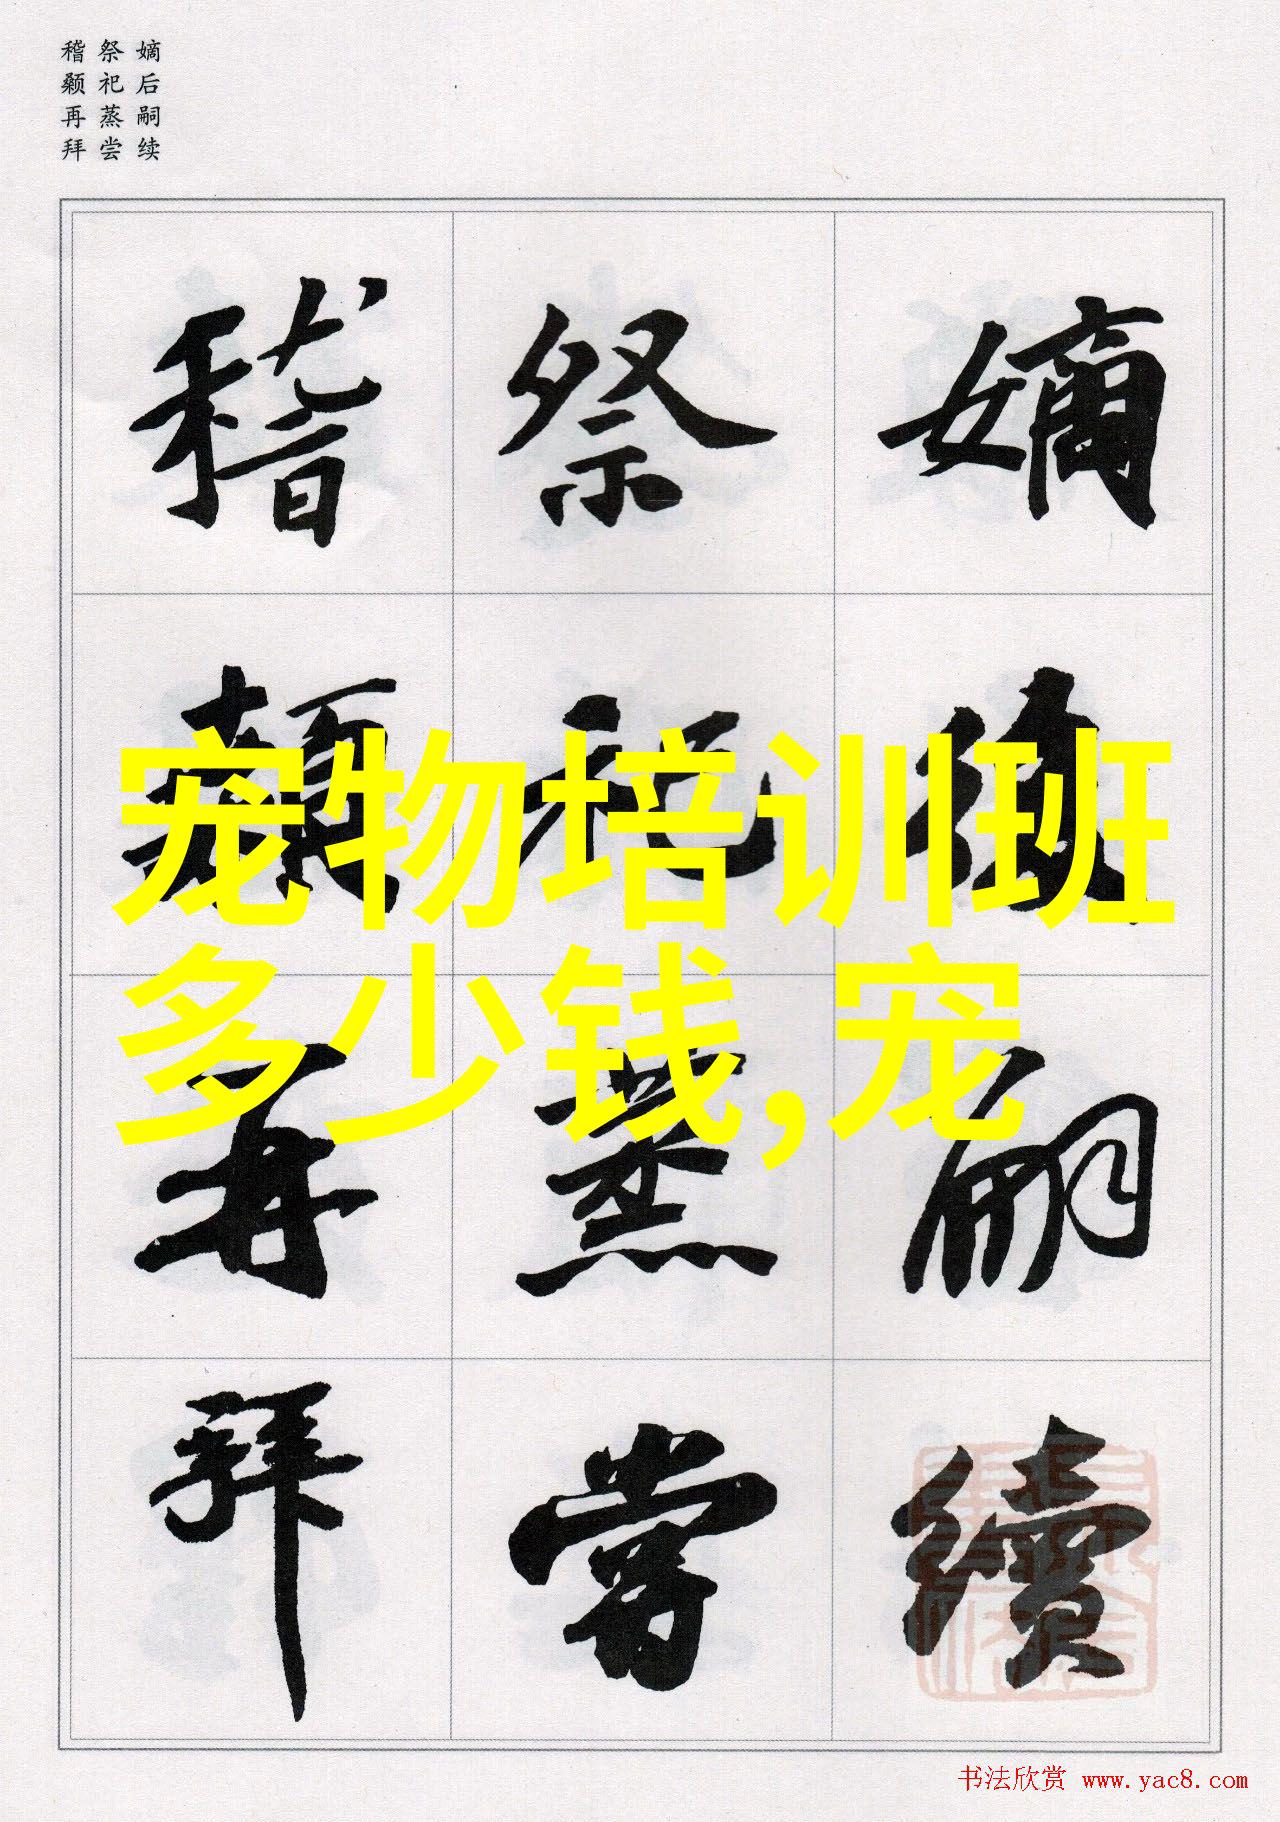 嫡后嗣续
祭祀蒸尝
稽颡再拜
嫡後嗣續
祭祀蒸嘗
稽顙再拜
宠物培训班
多少钱,宠
书法欣赏 www.yac8.com